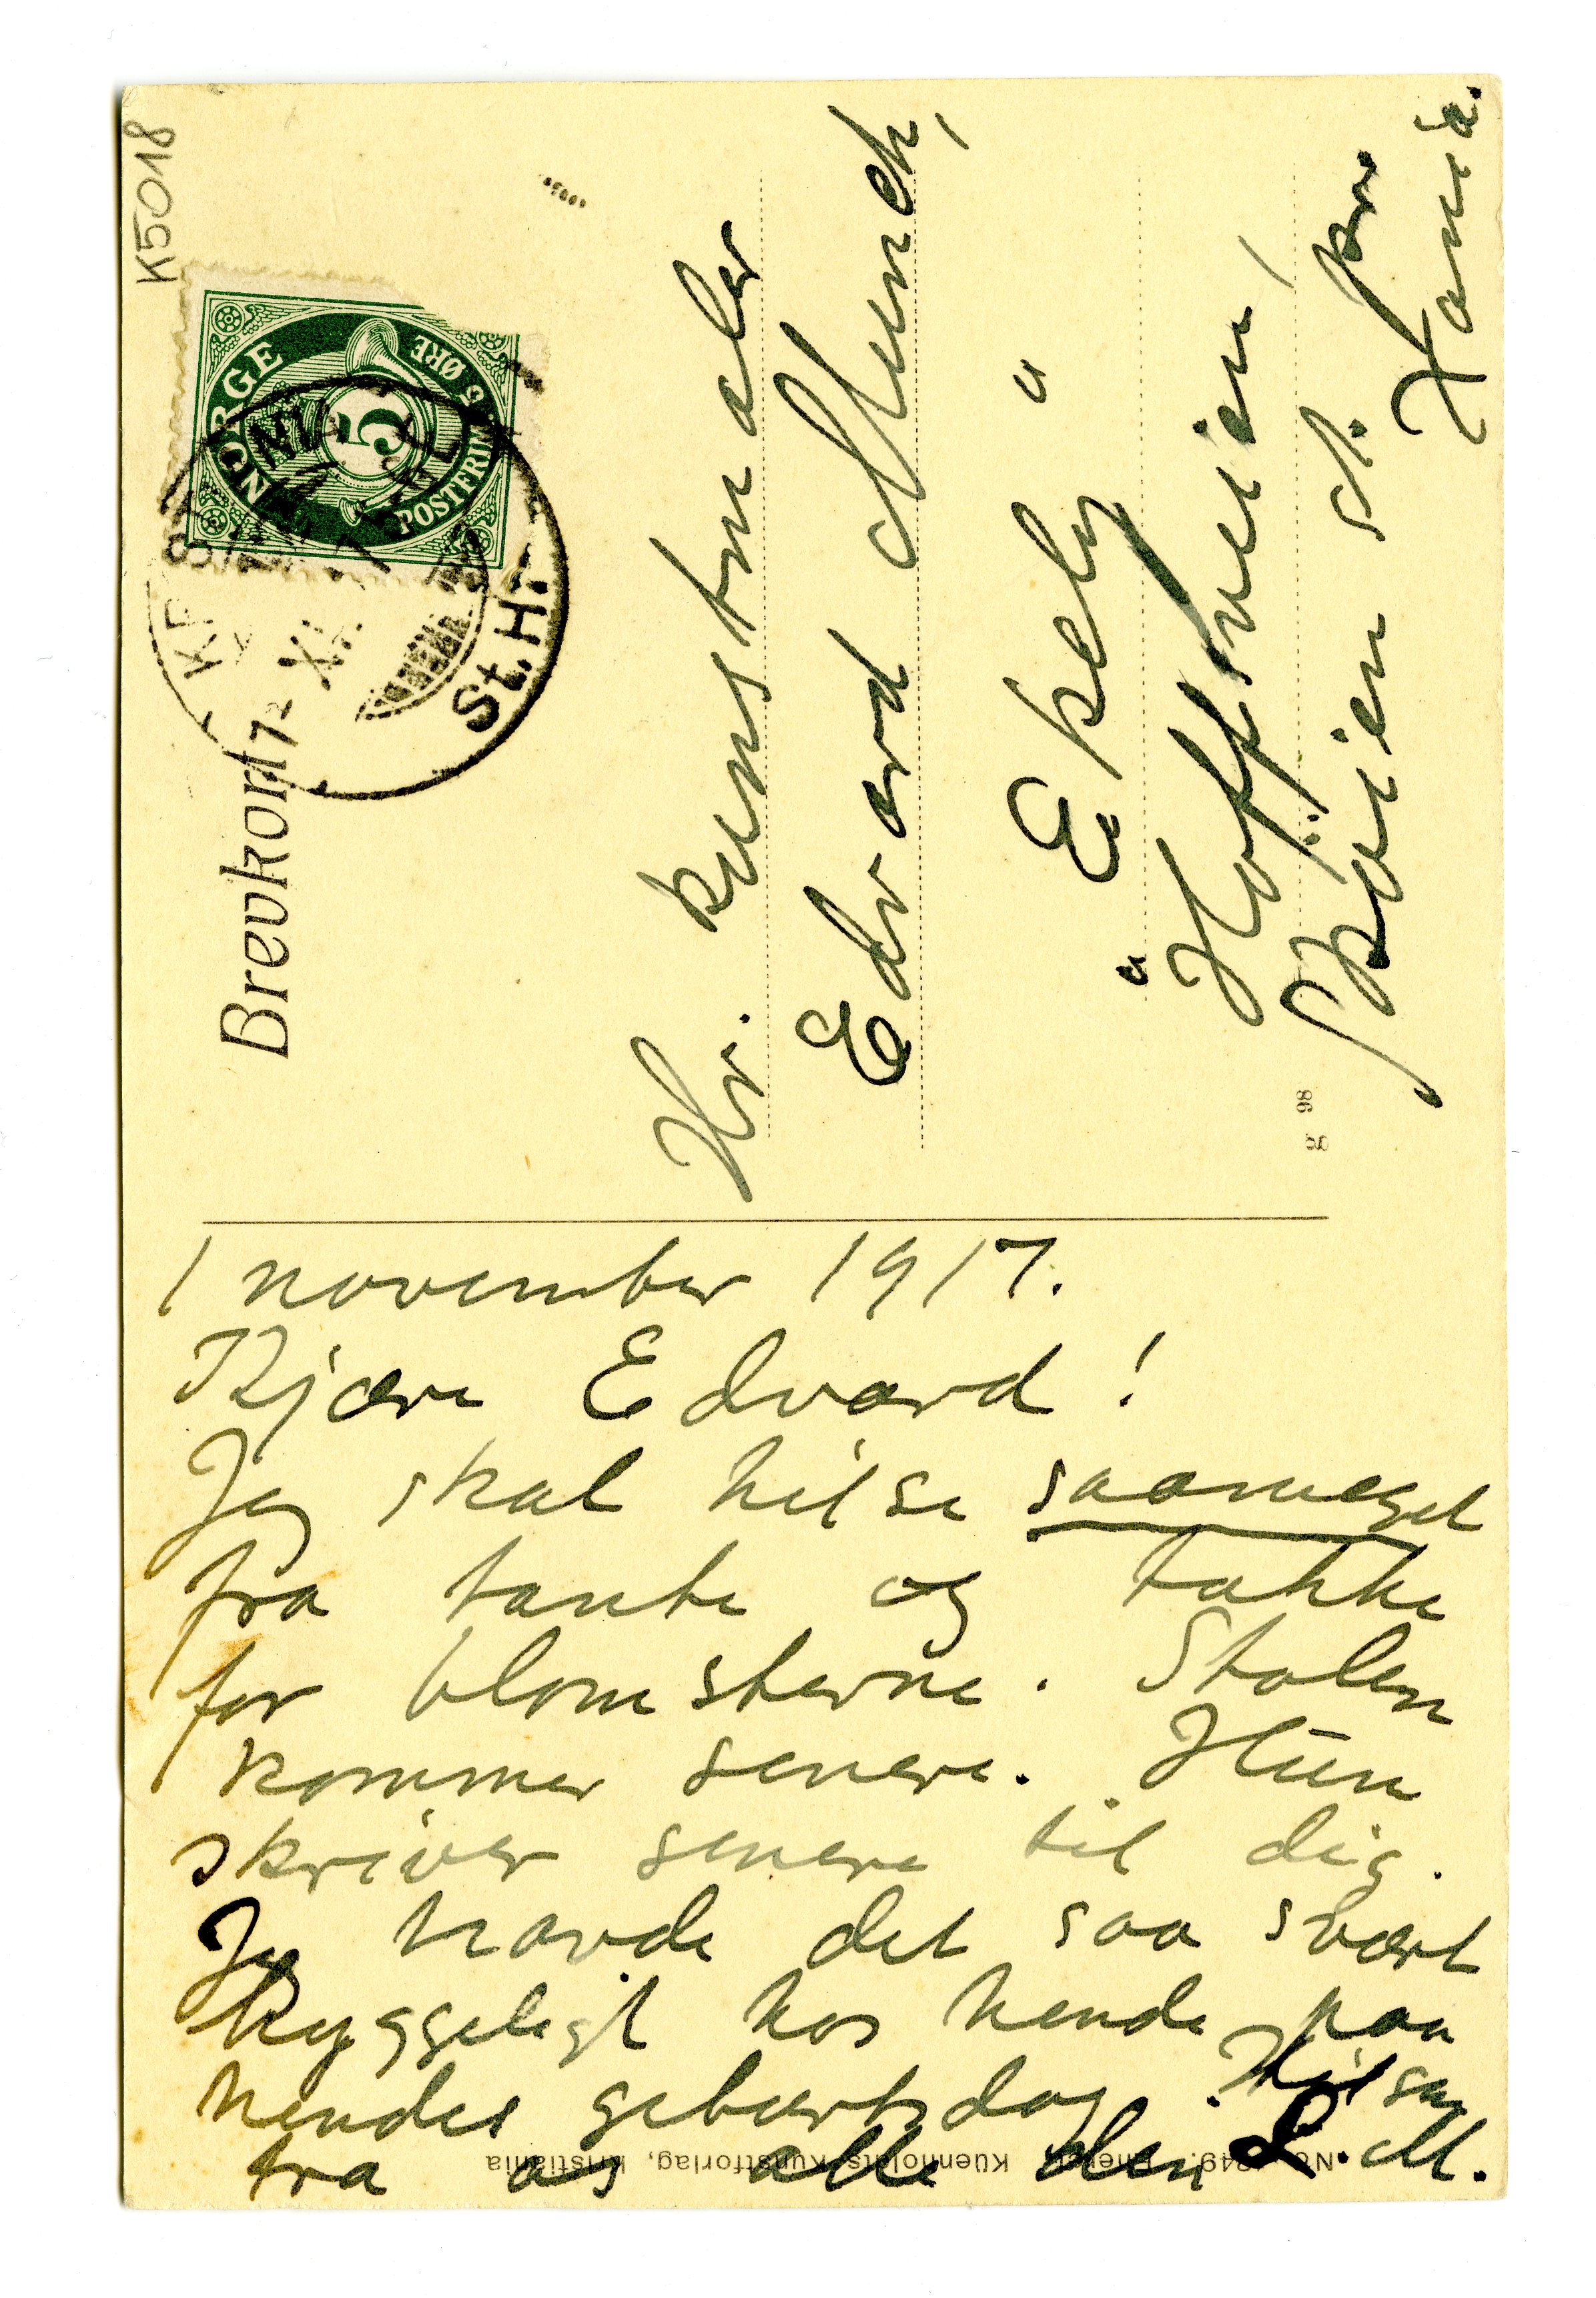 K5018
Brevkort
NORGE
5
POSTFRIM
5 ØRE
St.H.
XI
Hr. kunstmaler
Edvard Munch,
" Ekely "
Hoffsveien,
Skøien st. pr.
Xania.
g 98
1 november 1917.
Kjære Edvard!
Jeg skal hilse saameget
fra tante og takke
for blomsterne. Stolen
kommer senere. Hun
skriver senere til dig.
Jeg havde det saa svært
hyggeligt hos hende paa
hendes geburtsdag. Hilsen
fra os alle din L. M.
Küenholdts Kunstforlag, Kristiania